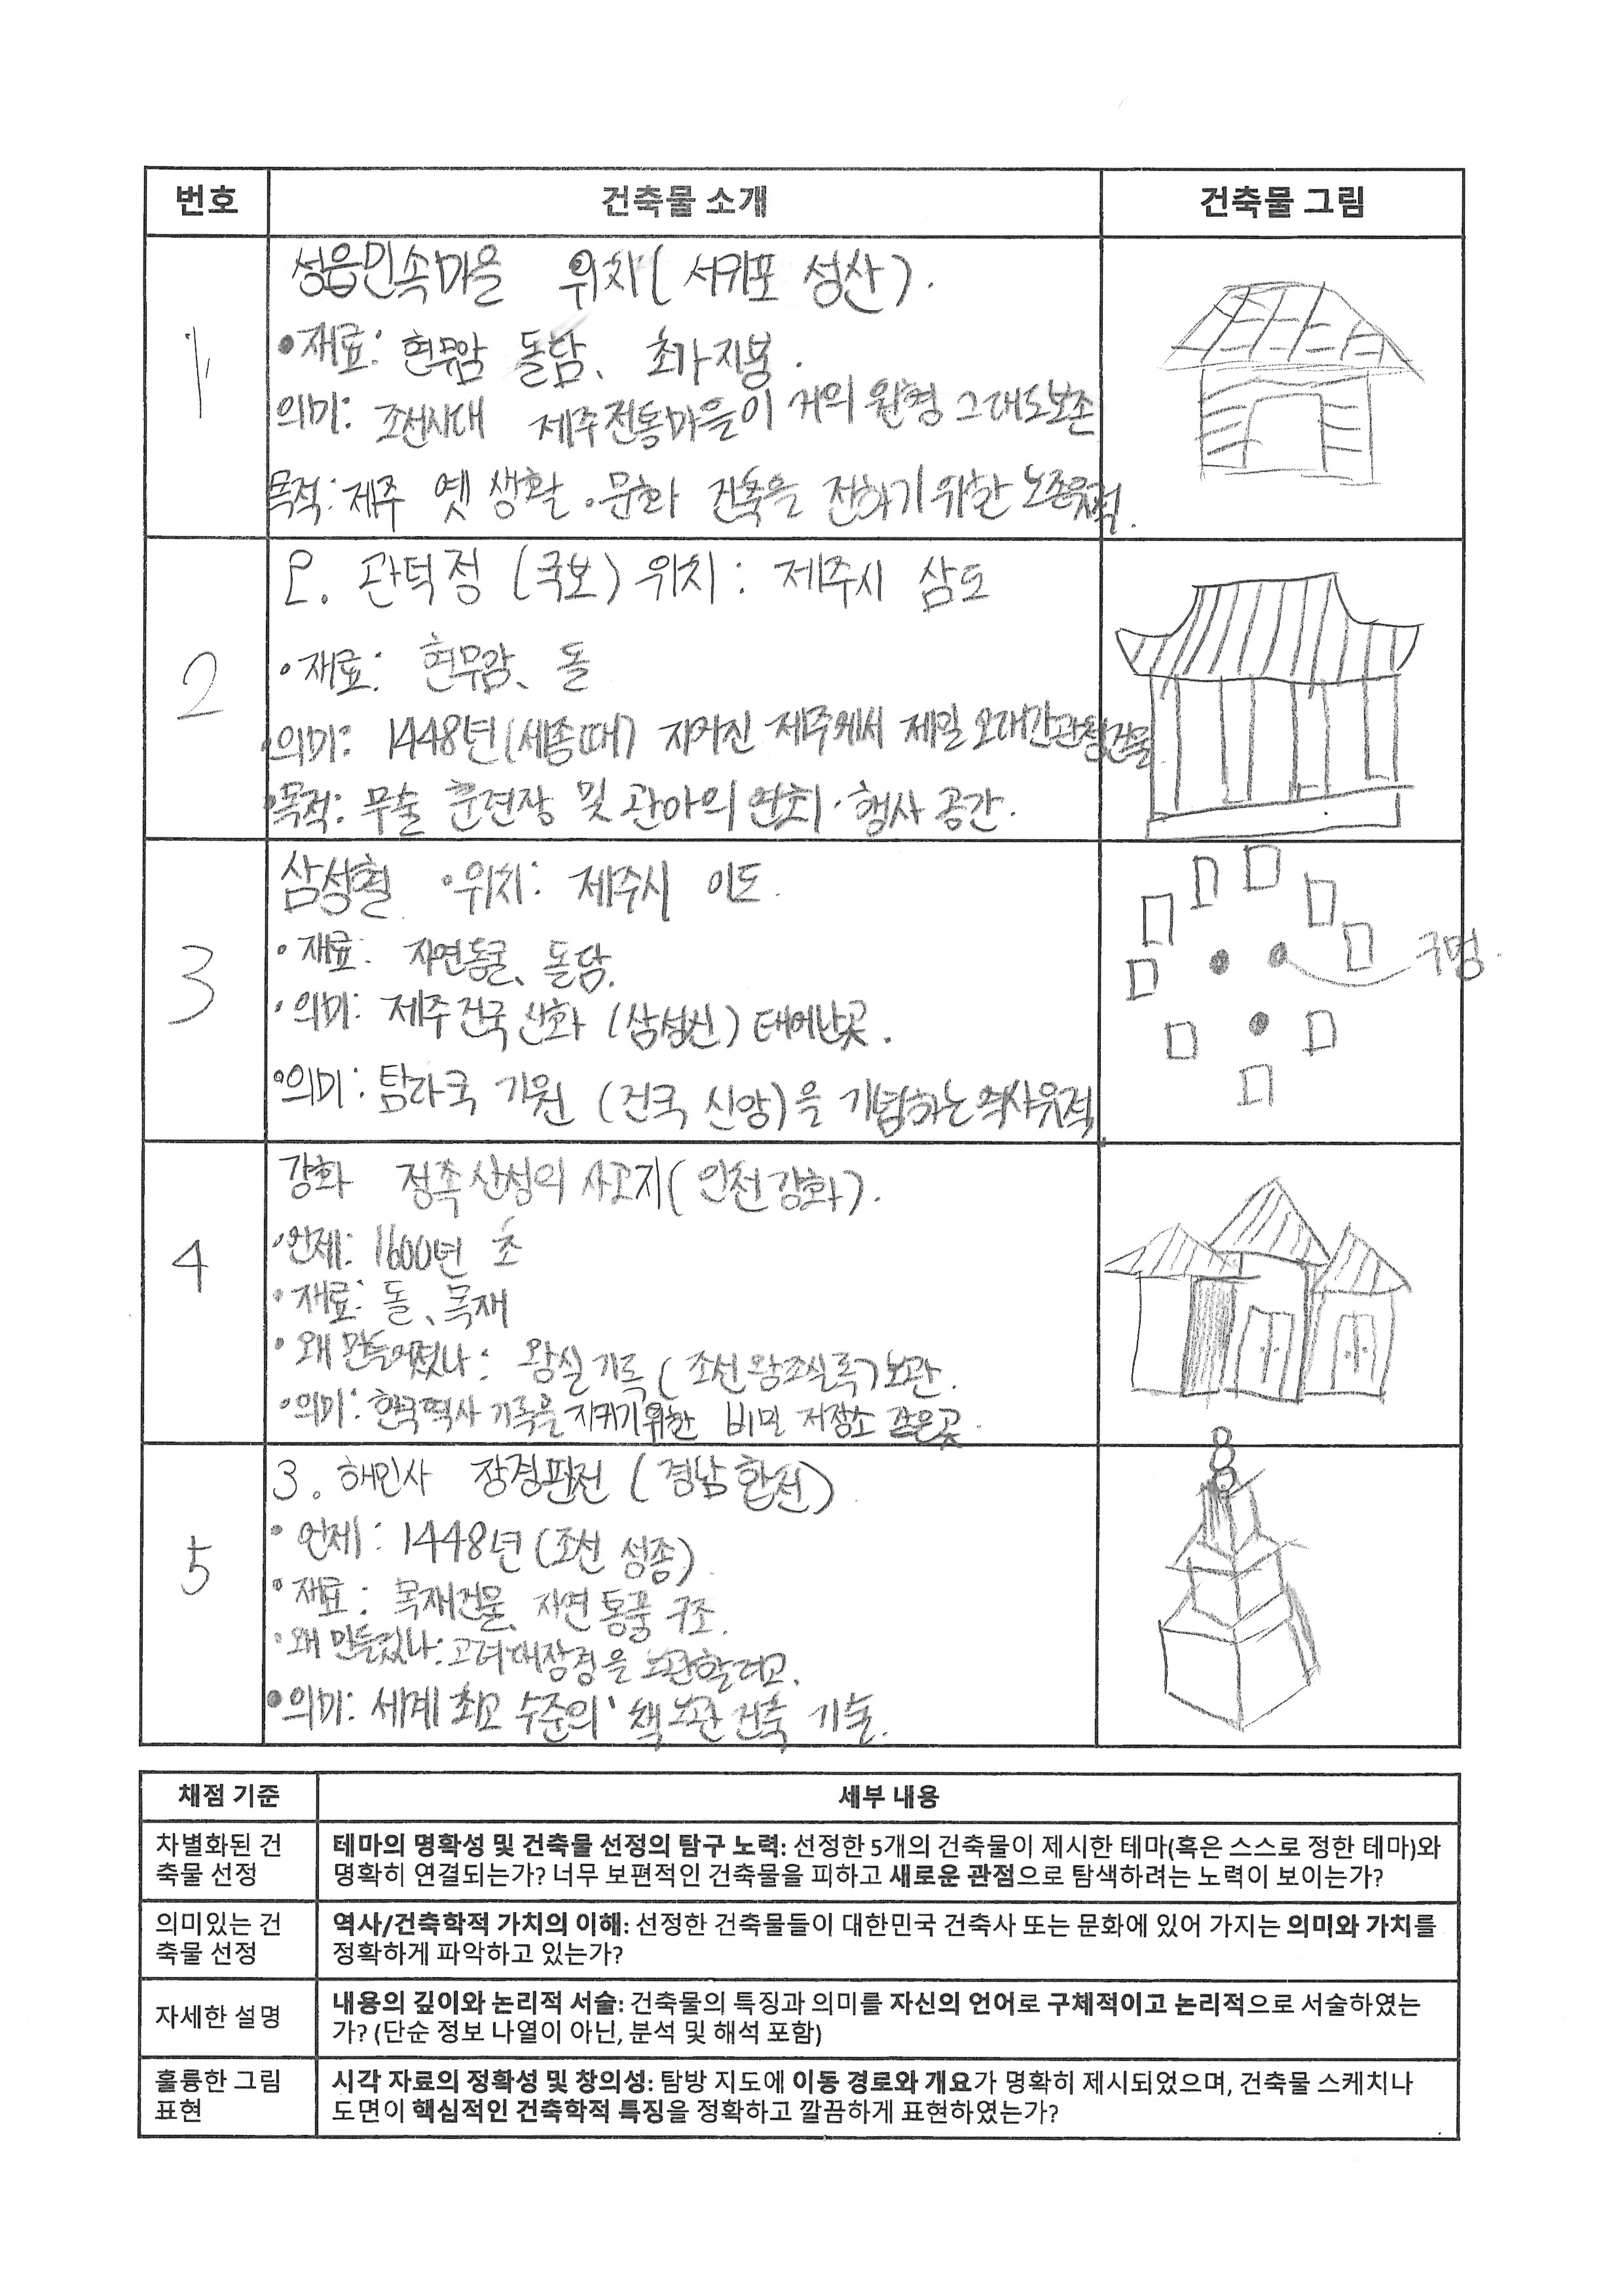 번호 건축물 소개 건축물 그림
1
성읍민속마을 위치(서귀포 성산).
•재료: 현무암 돌담、 초가지붕.
의미: 조선시대 제주전통마을이 거의 원형 그대로보존
목적: 제주 옛 생활·문화 건축을 전하기 위한 보존유적.
2
2. 관덕정 (국보) 위치: 제주시 삼도
•재료: 현무암、 돌
•의미: 1448년(세종때) 지어진 제주에서 제일 오래간관청건물
•목적: 무술 훈련장 및 관아의 연회·행사 공간.
3
삼성혈 •위치: 제주시 이도.
•재료: 자연동굴、 돌담.
•의미: 제주건국 신화 (삼성신) 태어난곳.
•의미: 탐라국 기원 (건국 신앙)을 기념하는 역사유적
구멍.
4
강화 정족산성의 사고지(인천강화).
•언제: 1600년 초
•재료: 돌、목재
•왜 만들어졌나: 왕실기록(조선왕조실록)보관.
•의미: 한국역사 기록을 지키기위한 비밀 저장소 같은곳.
5
3. 해인사 장경판전 (경남 합천)
•언제: 1448년(조선 성종)
•재료: 목재건물、자연 통풍 구조.
•왜 만들었나: 고려대장경을 보관할려고.
•의미: 세계 최고 수준의 책 보관 건축 기술.
채점 기준 세부 내용
차별화된 건
축물 선정
테마의 명확성 및 건축물 선정의 탐구 노력: 선정한 5개의 건축물이 제시한 테마(혹은 스스로 정한 테마)와
명확히 연결되는가? 너무 보편적인 건축물을 피하고 새로운 관점으로 탐색하려는 노력이 보이는가?
의미있는 건
축물 선정
역사/건축학적 가치의 이해: 선정한 건축물들이 대한민국 건축사 또는 문화에 있어 가지는 의미와 가치를
정확하게 파악하고 있는가?
자세한 설명
내용의 깊이와 논리적 서술: 건축물의 특징과 의미를 자신의 언어로 구체적이고 논리적으로 서술하였는
가? (단순 정보 나열이 아닌, 분석 및 해석 포함)
훌륭한 그림
표현
시각 자료의 정확성 및 창의성: 탐방 지도에 이동 경로와 개요가 명확히 제시되었으며, 건축물 스케치나
도면이 핵심적인 건축학적 특징을 정확하고 깔끔하게 표현하였는가?